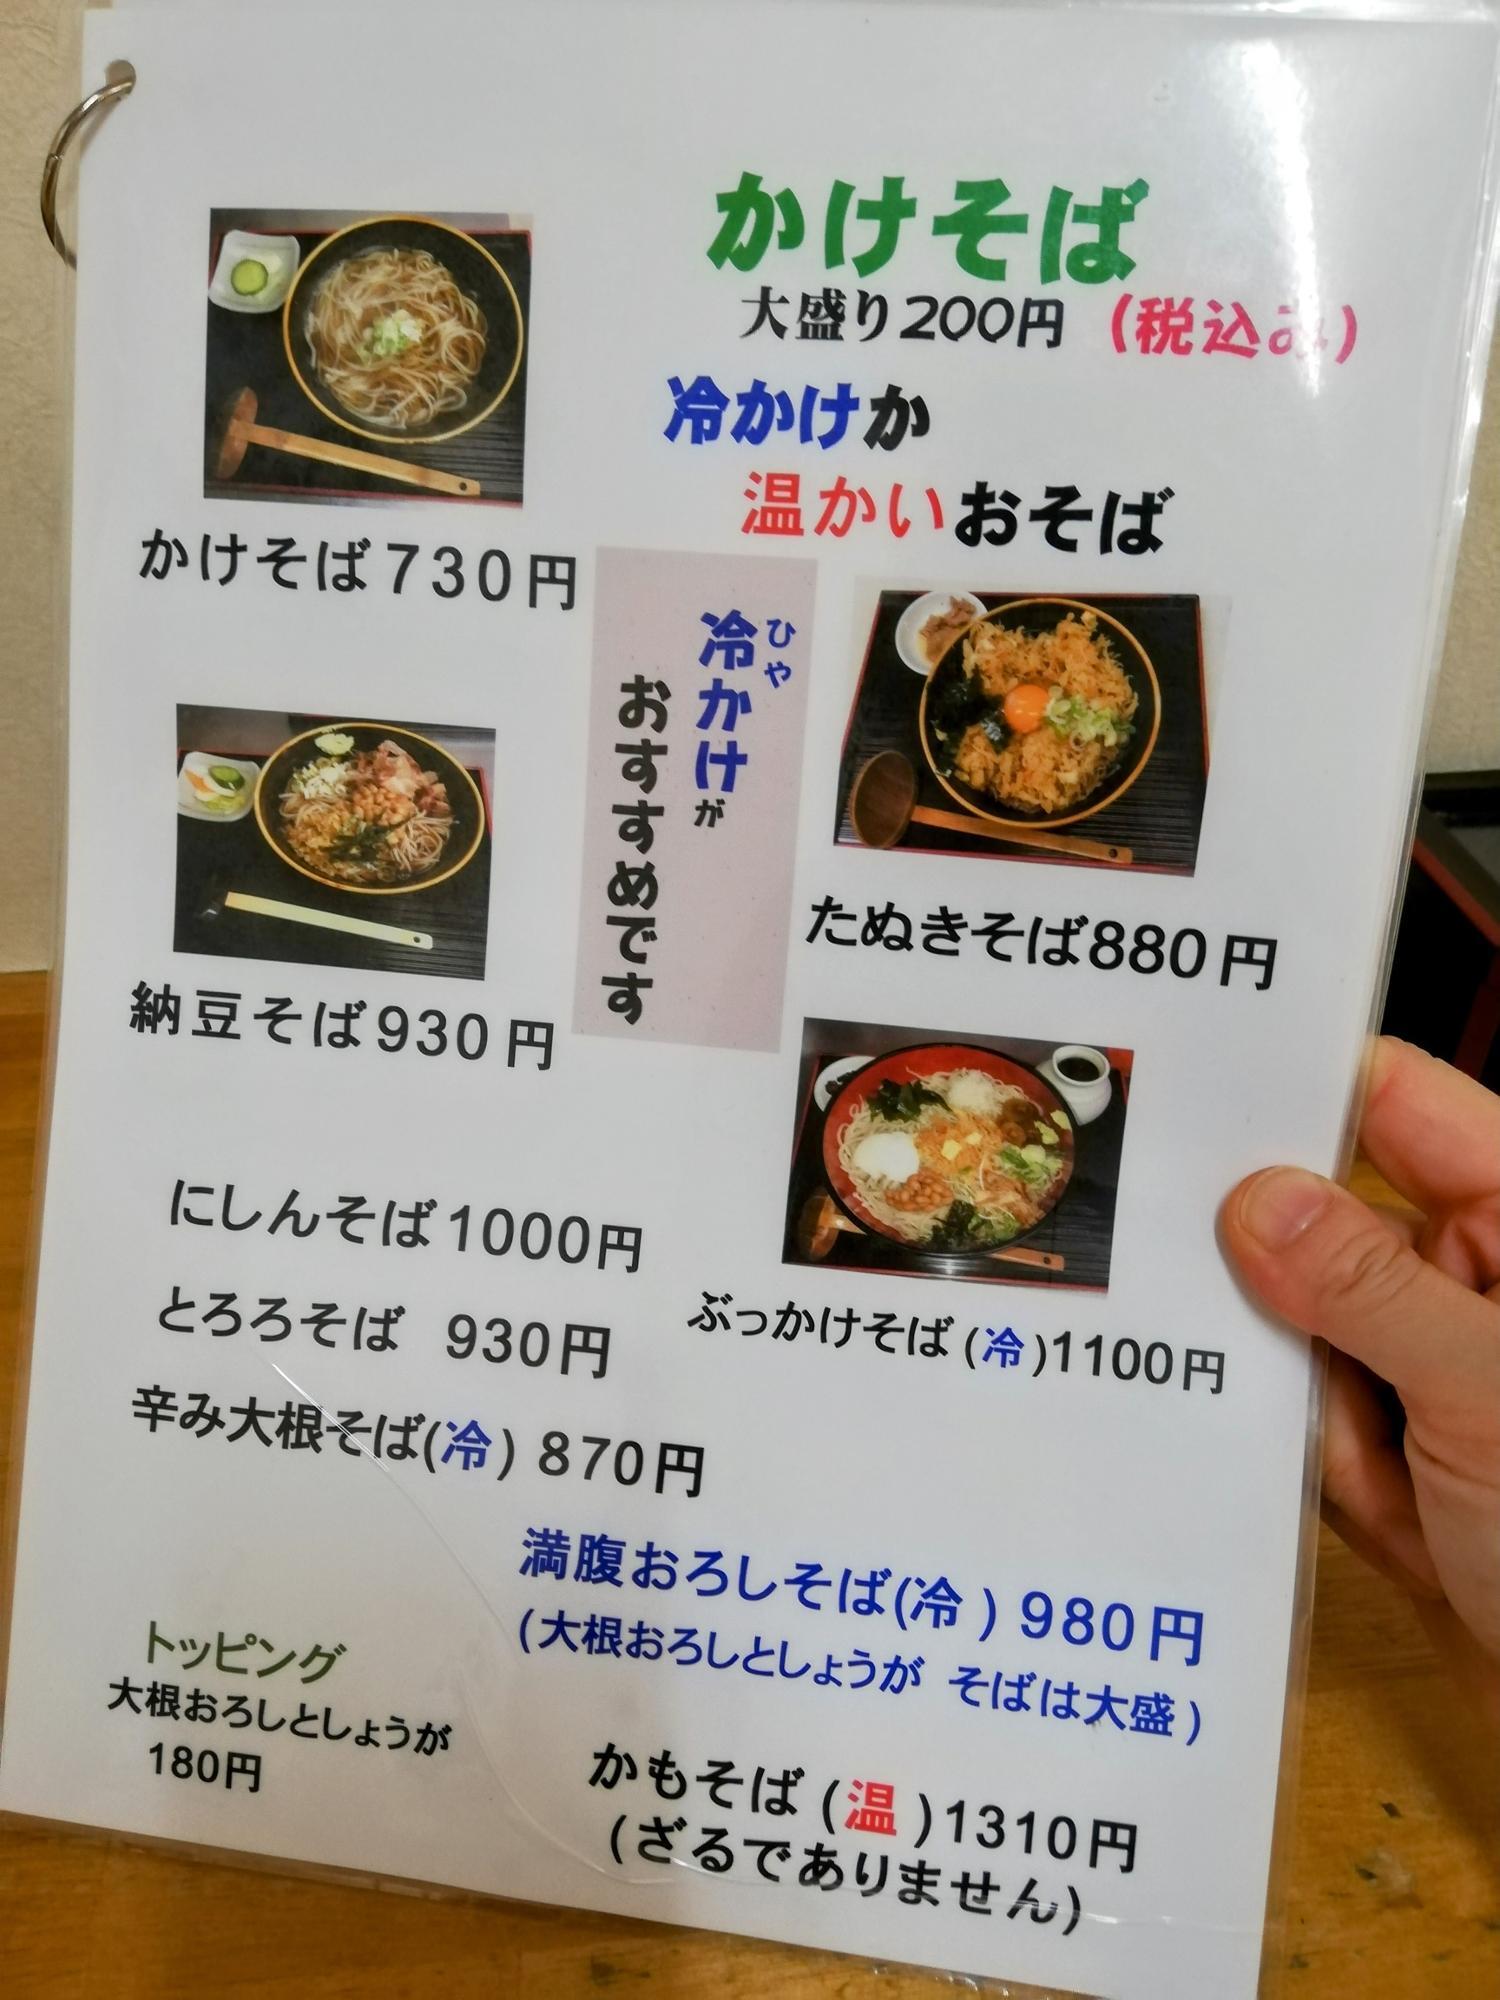 かけそば
大盛り200円 (税込み)
冷かけか
温かいおそば
かけそば730円
冷かけが
ひや
おすすめです
たぬきそば880円
納豆そば930円
にしんそば1000円
とろろそば 930円
ぶっかけそば(冷)1100円
辛み大根そば(冷) 870円
満腹おろしそば(冷) 980円
(大根おろしとしょうが そばは大盛)
トッピング
大根おろしとしょうが
180円
かもそば(温)1310円
(ざるでありません)